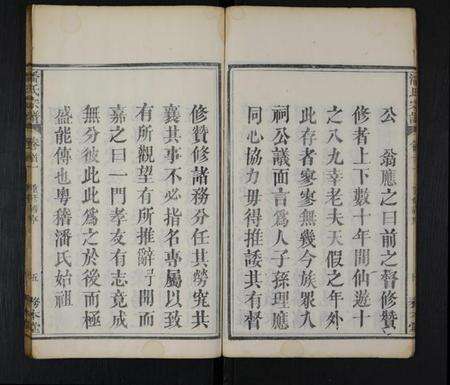 公　翁應之曰前之督修贊
修者上下數十年間仙遊十
之八九幸老夫天假之年外
此存者寥寥無幾今族眾入
祠公議面言為人子孫理應
同心協力毋得推諉其有督
修贊修諸務分任其勞究其
襄其事不必指名專屬以致
有所觀望有所推辭弓聞而
嘉之曰一門孝友有志竟成
無分彼此此為之於後而極
盛能傳也粵稽潘氏始祖
潘氏宗譜
卷首
五
務本堂